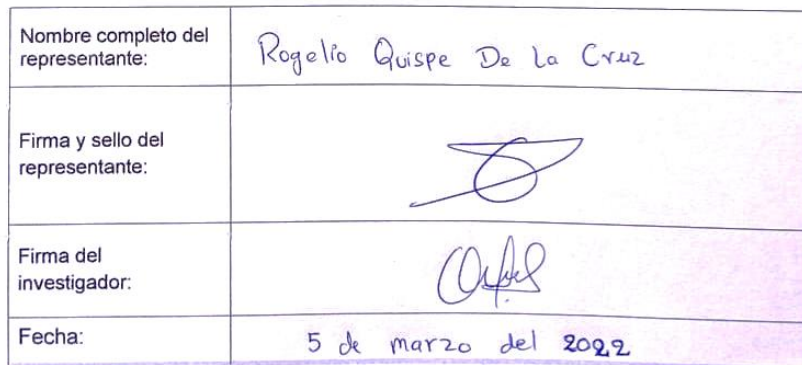 Nombre completo del
representante:
Rogelio Quispe De La Cruz
Firma y sello del
representante:
Firma del
investigador:
Fecha:
5 de marzo del 2022